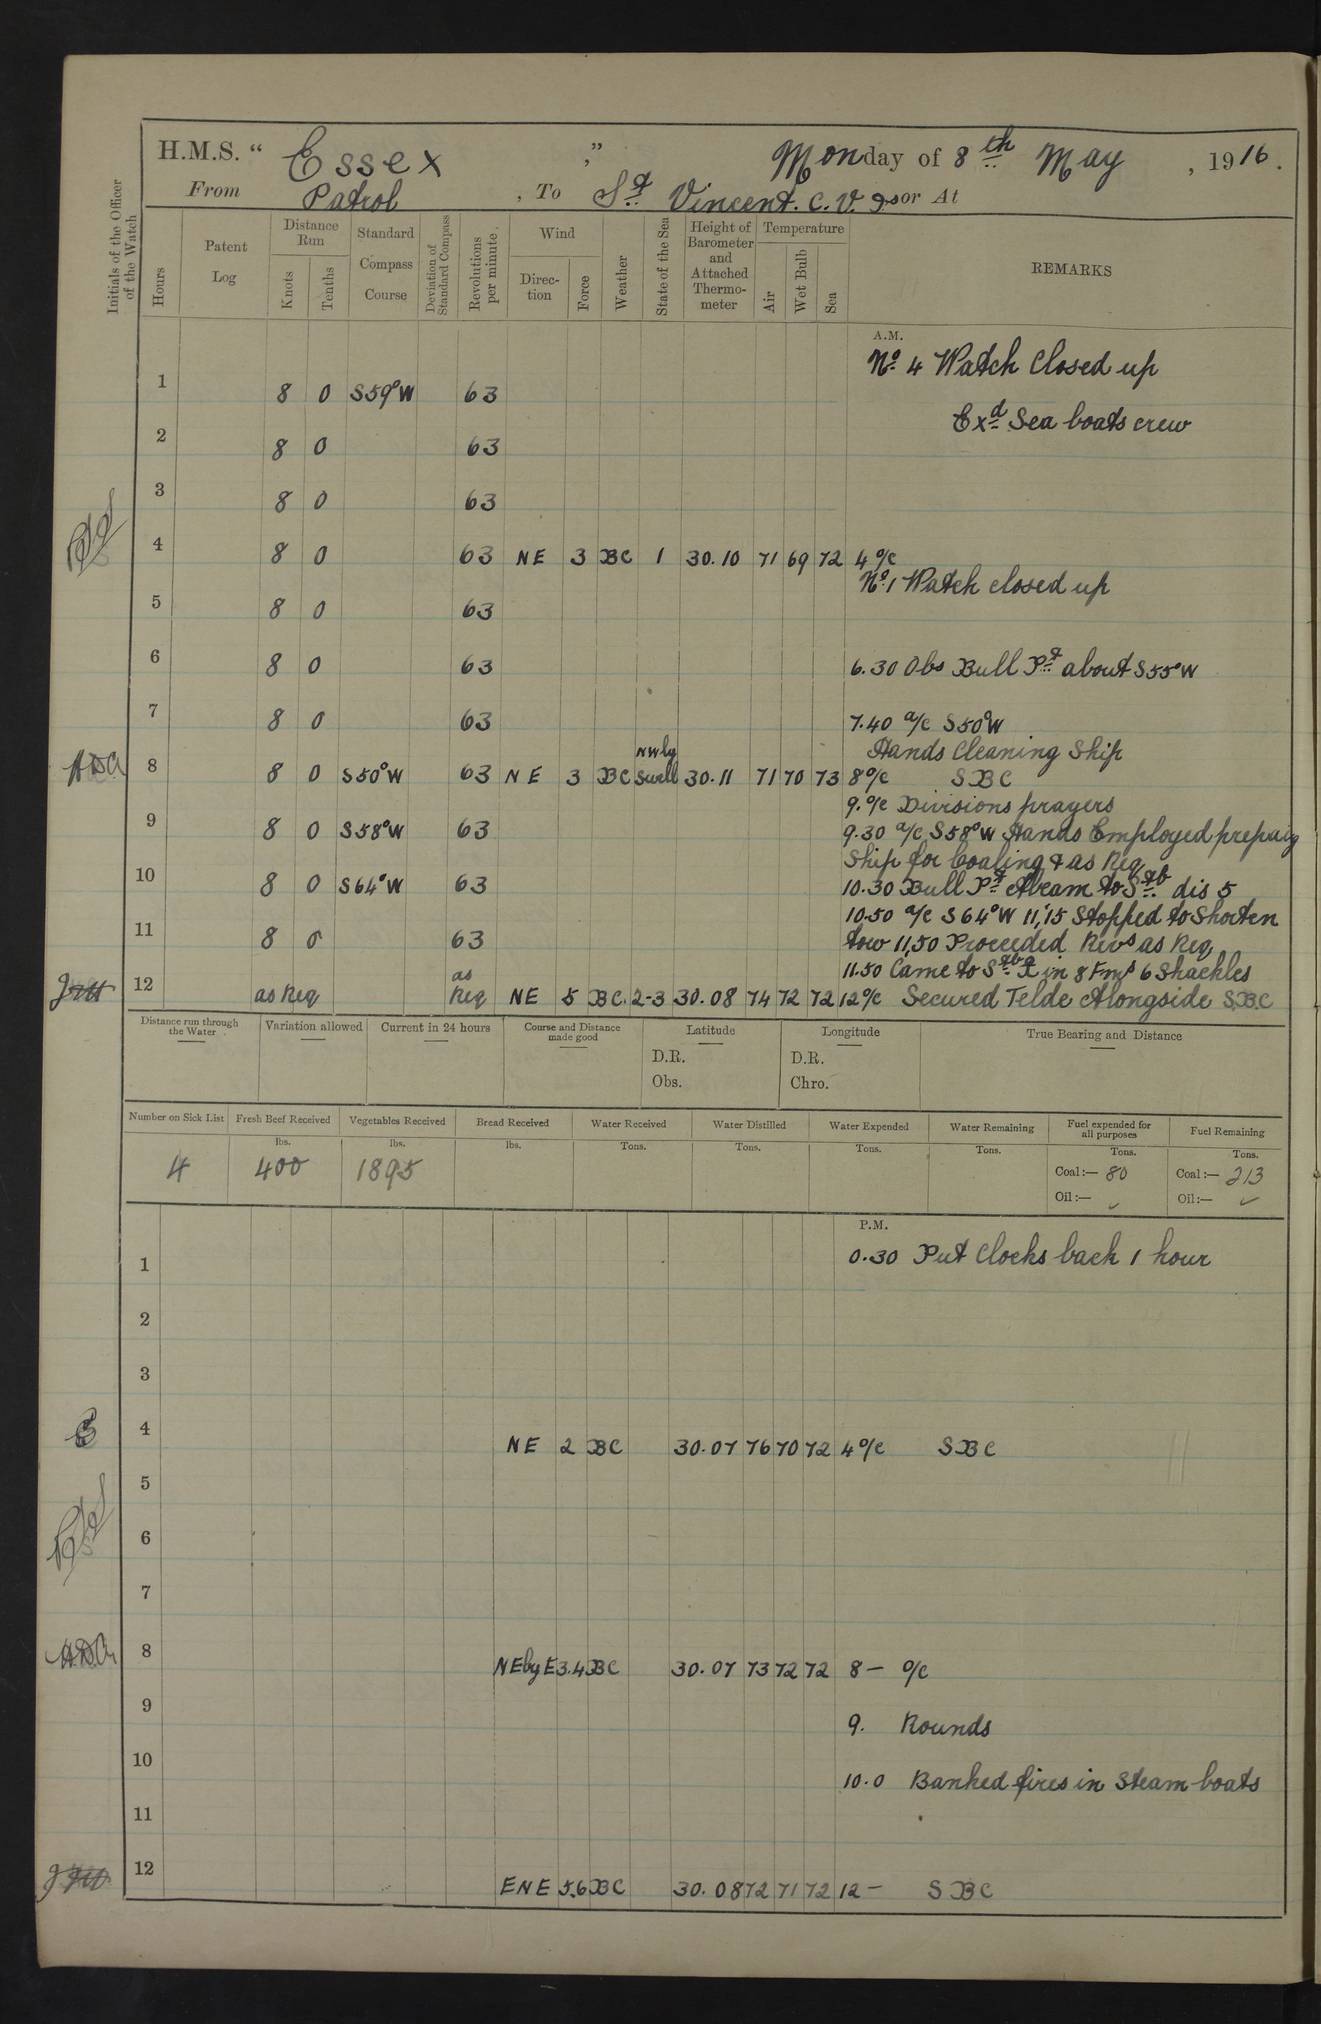 H.M.S. “ Essex ,” Monday of 8th May , 1916.
From Patrol , To St Vincent. C. V. Is or At
Initials of the Officer of the Watch
Hours
Patent Log
Distance Run
Knots
Tenths
Standard Compass Course
Deviation of Standard Compass
Revolutions per minute.
Wind
Direction
Force
Weather
State of the Sea
Height of Barometer and Attached Thermometer
Temperature
Air
Wet Bulb
Sea
REMARKS
A.M.
No 4 Watch Closed up
1 8 0 S59°W 63
Exd Sea boats crew
2 8 0 63
3 8 0 63
4 8 0 63 NE 3 BC 1 30.10 71 69 72 4 o/c
No 1 Watch closed up
5 8 0 63
6 8 0 63 6.30 Obs Bull Pt about S55°W
7 8 0 63 7.40 a/c S50°W
Hands Cleaning Ship
ADC 8 8 0 S50°W 63 NE 3 BC NWly Swell 30.11 71 70 73 8 o/c SBC
9. o/c Divisions prayers
9 8 0 S58°W 63 9.30 a/c S58°W Hands Employed prepaig
Ship for Coaling & as Req
10 8 0 S64°W 63 10.30 Bull Pt Abeam to Stb dis 5
10.50 a/c S64°W 11.15 Stopped to Shorten
11 8 0 63 tow 11,50 Proceeded Revs as Req
11.50 Came to Stbd in 8 Fms 6 Shackles
12 as Req as Req NE 5 BC. 2-3 30.08 74 72 72 12 o/c Secured Telde Alongside SBC
Distance run through the Water
Variation allowed
Current in 24 hours
Course and Distance made good
Latitude
D.R.
Obs.
Longitude
D.R.
Chro.
True Bearing and Distance
Number on Sick List
Fresh Beef Received
Vegetables Received
Bread Received
Water Received
Water Distilled
Water Expended
Water Remaining
Fuel expended for all purposes
Fuel Remaining
lbs. lbs. lbs. Tons. Tons. Tons. Tons. Tons. Tons.
4 400 1895 Coal:— 80 Coal:— 213
Oil:— ✓ Oil:— ✓
P.M.
1 0.30 Put Clocks back 1 hour
2
3
4 NE 2 BC 30.07 76 70 72 4 o/c SBC
5
6
7
8 NEbyE 3.4 BC 30.07 73 72 72 8 — o/c
9 9. Rounds
10 10.0 Banked fires in Steam boats
11
12 ENE 5.6 BC 30.08 72 71 72 12 — SBC